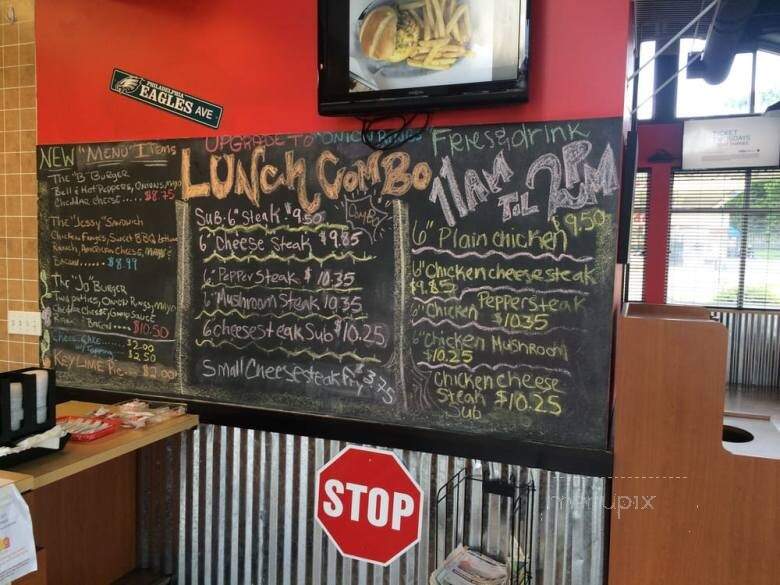 PHILADELPHIA
EAGLES AVE
NEW "MENU" ITEMS
THE "B" BURGER
BELL & HOT PEPPERS, ONIONS, MAYO
CHEDDAR CHEESE..... $8.75
THE "JESSY" SANDWICH
CHICKEN FINGERS, SWEET BBQ &
RANCH, AMERICAN CHEESE, MAYO &
BACON...... $8.99
THE "JO" BURGER
TWO PATTIES, ONION RINGS, MAYO
CHEDDAR CHEESE/ SAUCE
BREAD..... $10.50
CAKE..... $2.00
W/ TOPPING $2.50
KEY LIME PIE... $2.00
UPGRADE TO ONION RINGS
LUNCH COMBO
COMBO
SUB-6" STEAK $9.50
6" CHEESE STEAK $9.85
6" PEPPER STEAK $10.35
6" MUSHROOM STEAK 10.35
6 CHEESESTEAK SUB $10.25
SMALL CHEESESTEAK FRY $3.75
FRIES & DRINK
11AM TIL 2PM
$9.50
6" PLAIN CHICKEN
6" CHICKEN CHEESE STEAK
$9.85
6" CHICKEN PEPPER STEAK
$10.35
6" CHICKEN MUSHROOM
$10.25
CHICKEN CHEESE
STEAK $10.25
SUB
STOP
TICKET
TUESDAYS
menupix